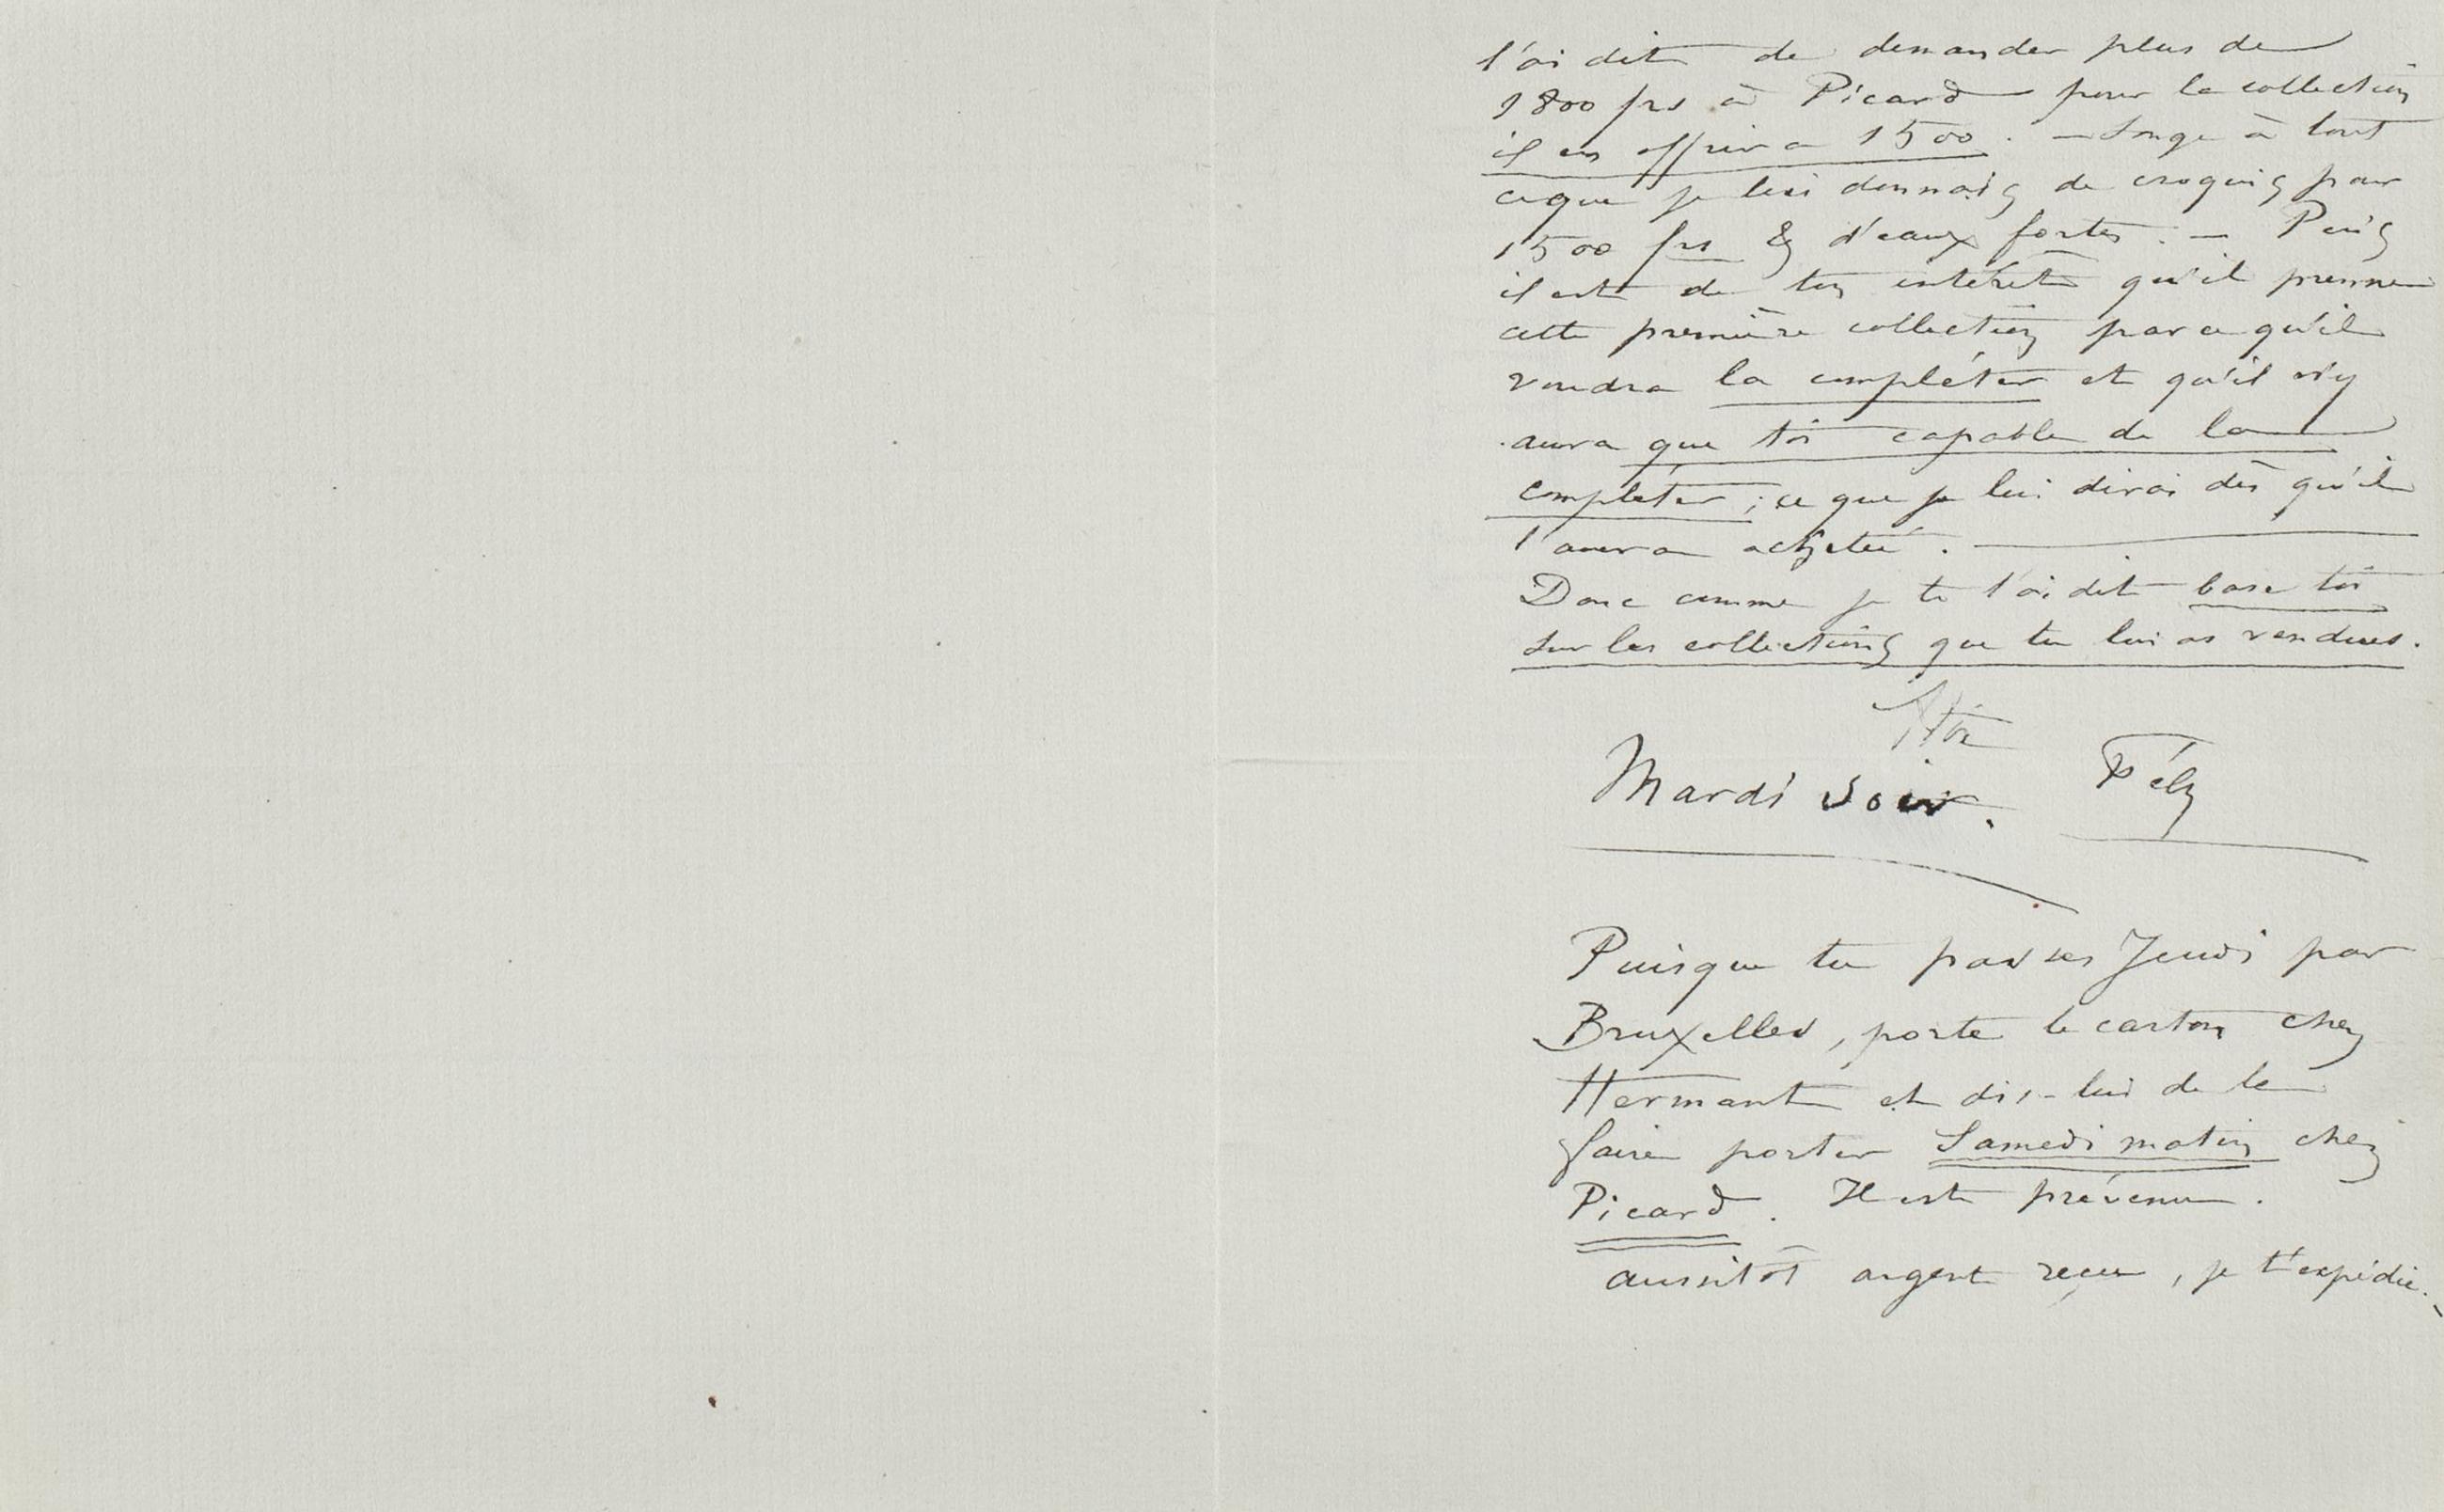 l'ai dit de demander plus de
1800 frs à Picard pour la collection
il en offrira 1500. — Songe à tout
ceque je lui donnais de croquis pour
1500 frs & d'eaux fortes. — Puis
il est de ton intérêt qu'il prenne
cette première collection parcequ'il
voudra la compléter et qu'il n'y
aura que toi capable de la
compléter ; ce que je lui dirai dès qu'il
l'aura achetée. —
Donc comme je te l'ai dit base toi
sur les collections que tu lui as vendues.
Mardi soir. Fély
Puisque tu passes Jeudi par
Bruxelles, porte le carton chez
Hermant et dis-lui de le
faire porter Samedi matin chez
Picard. Il est prévenu.
aussitôt argent reçu, je t'expédie.